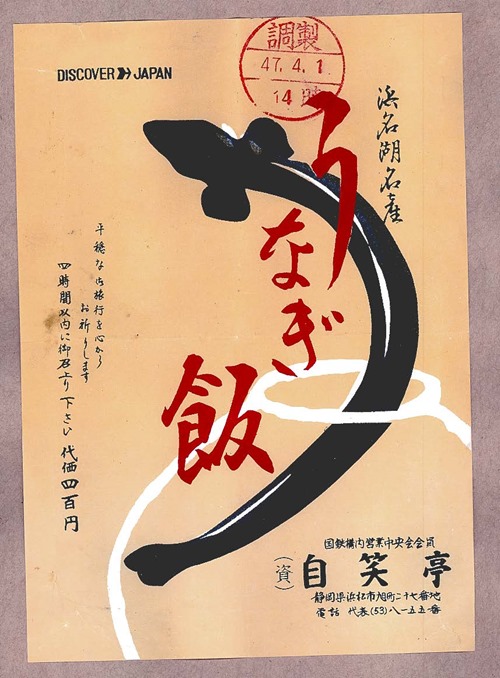 調製
47.4.1
14時
DISCOVER JAPAN
浜名湖名産
うなぎ
飯
平穏な御旅行を心から
お祈りします
四時間以内に御召上り下さい 代価四百円
国鉄構内営業中央会会員
(資)自笑亭
静岡県浜松市旭町二十七番地
電話 代表(53)八一五五番